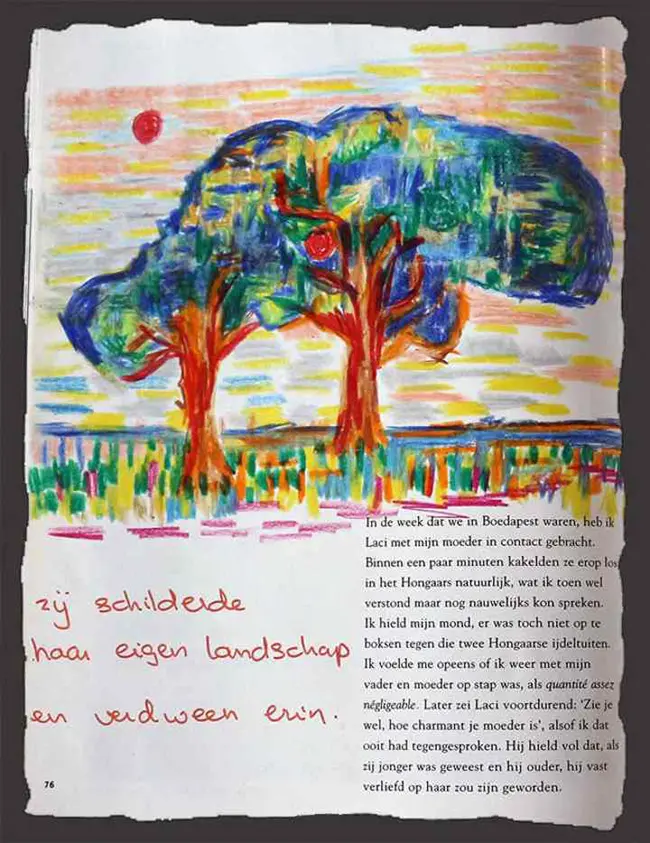 In de week dat we in Boedapest waren, heb ik
Laci met mijn moeder in contact gebracht.
Binnen een paar minuten kakelden ze erop los
in het Hongaars natuurlijk, wat ik toen wel
verstond maar nog nauwelijks kon spreken.
Ik hield mijn mond, er was toch niet op te
boksen tegen die twee Hongaarse ijdeltuiten.
Ik voelde me opeens of ik weer met mijn
vader en moeder op stap was, als quantité assez
négligeable. Later zei Laci voortdurend: ‘Zie je
wel, hoe charmant je moeder is’, alsof ik dat
ooit had tegengesproken. Hij hield vol dat, als
zij jonger was geweest en hij ouder, hij vast
verliefd op haar zou zijn geworden.
zij schilderde
haar eigen landschap
en verdween erin.
76